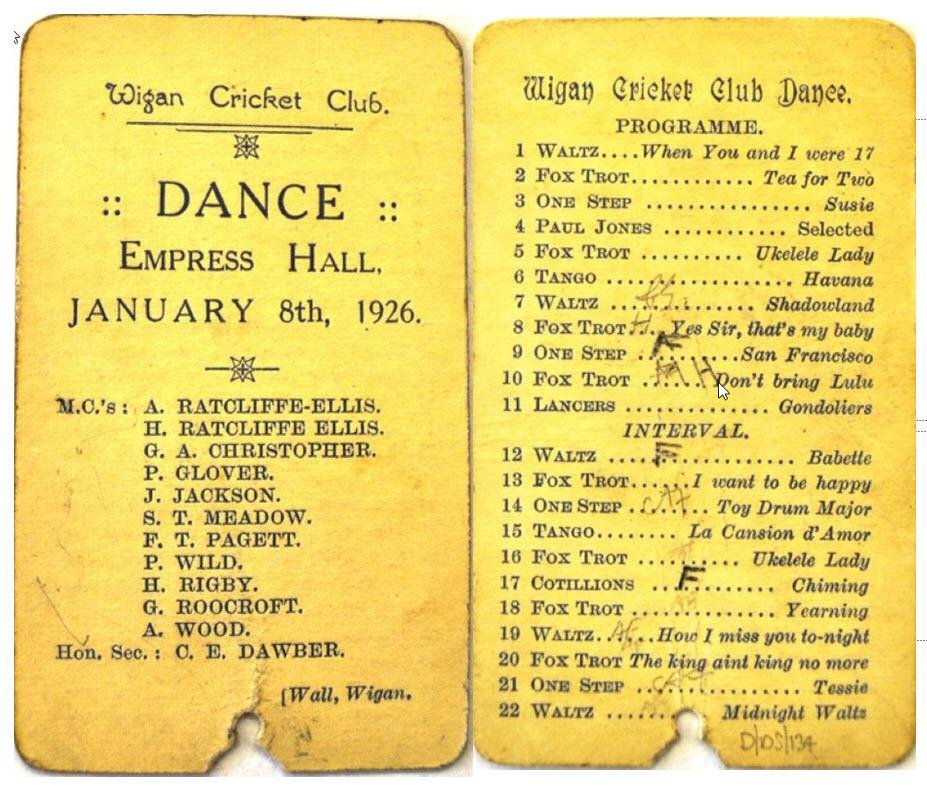 Wigan Cricket Club.
:: DANCE ::
EMPRESS HALL,
JANUARY 8th, 1926.
M.C.'s : A. RATCLIFFE-ELLIS.
H. RATCLIFFE ELLIS.
G. A. CHRISTOPHER.
P. GLOVER.
J. JACKSON.
S. T. MEADOW.
F. T. PAGETT.
P. WILD.
H. RIGBY.
G. ROOCROFT.
A. WOOD.
Hon. Sec. : C. E. DAWBER.
[Wall, Wigan.
Wigan Cricket Club Dance.
PROGRAMME.
1 WALTZ....When You and I were 17
2 FOX TROT............ Tea for Two
3 ONE STEP ................ Susie
4 PAUL JONES ............ Selected
5 FOX TROT .......... Ukelele Lady
6 TANGO ................ Havana
7 WALTZ ............ Shadowland
8 FOX TROT.... Yes Sir, that's my baby
9 ONE STEP ..........San Francisco
10 FOX TROT ...... Don't bring Lulu
11 LANCERS .............. Gondoliers
INTERVAL.
12 WALTZ ................ Babette
13 FOX TROT......I want to be happy
14 ONE STEP ........ Toy Drum Major
15 TANGO........ La Cansion d'Amor
16 FOX TROT .......... Ukelele Lady
17 COTILLIONS ............ Chiming
18 FOX TROT .............. Yearning
19 WALTZ......How I miss you to-night
20 FOX TROT The king aint king no more
21 ONE STEP ................ Tessie
22 WALTZ .......... Midnight Waltz
D/DS/134